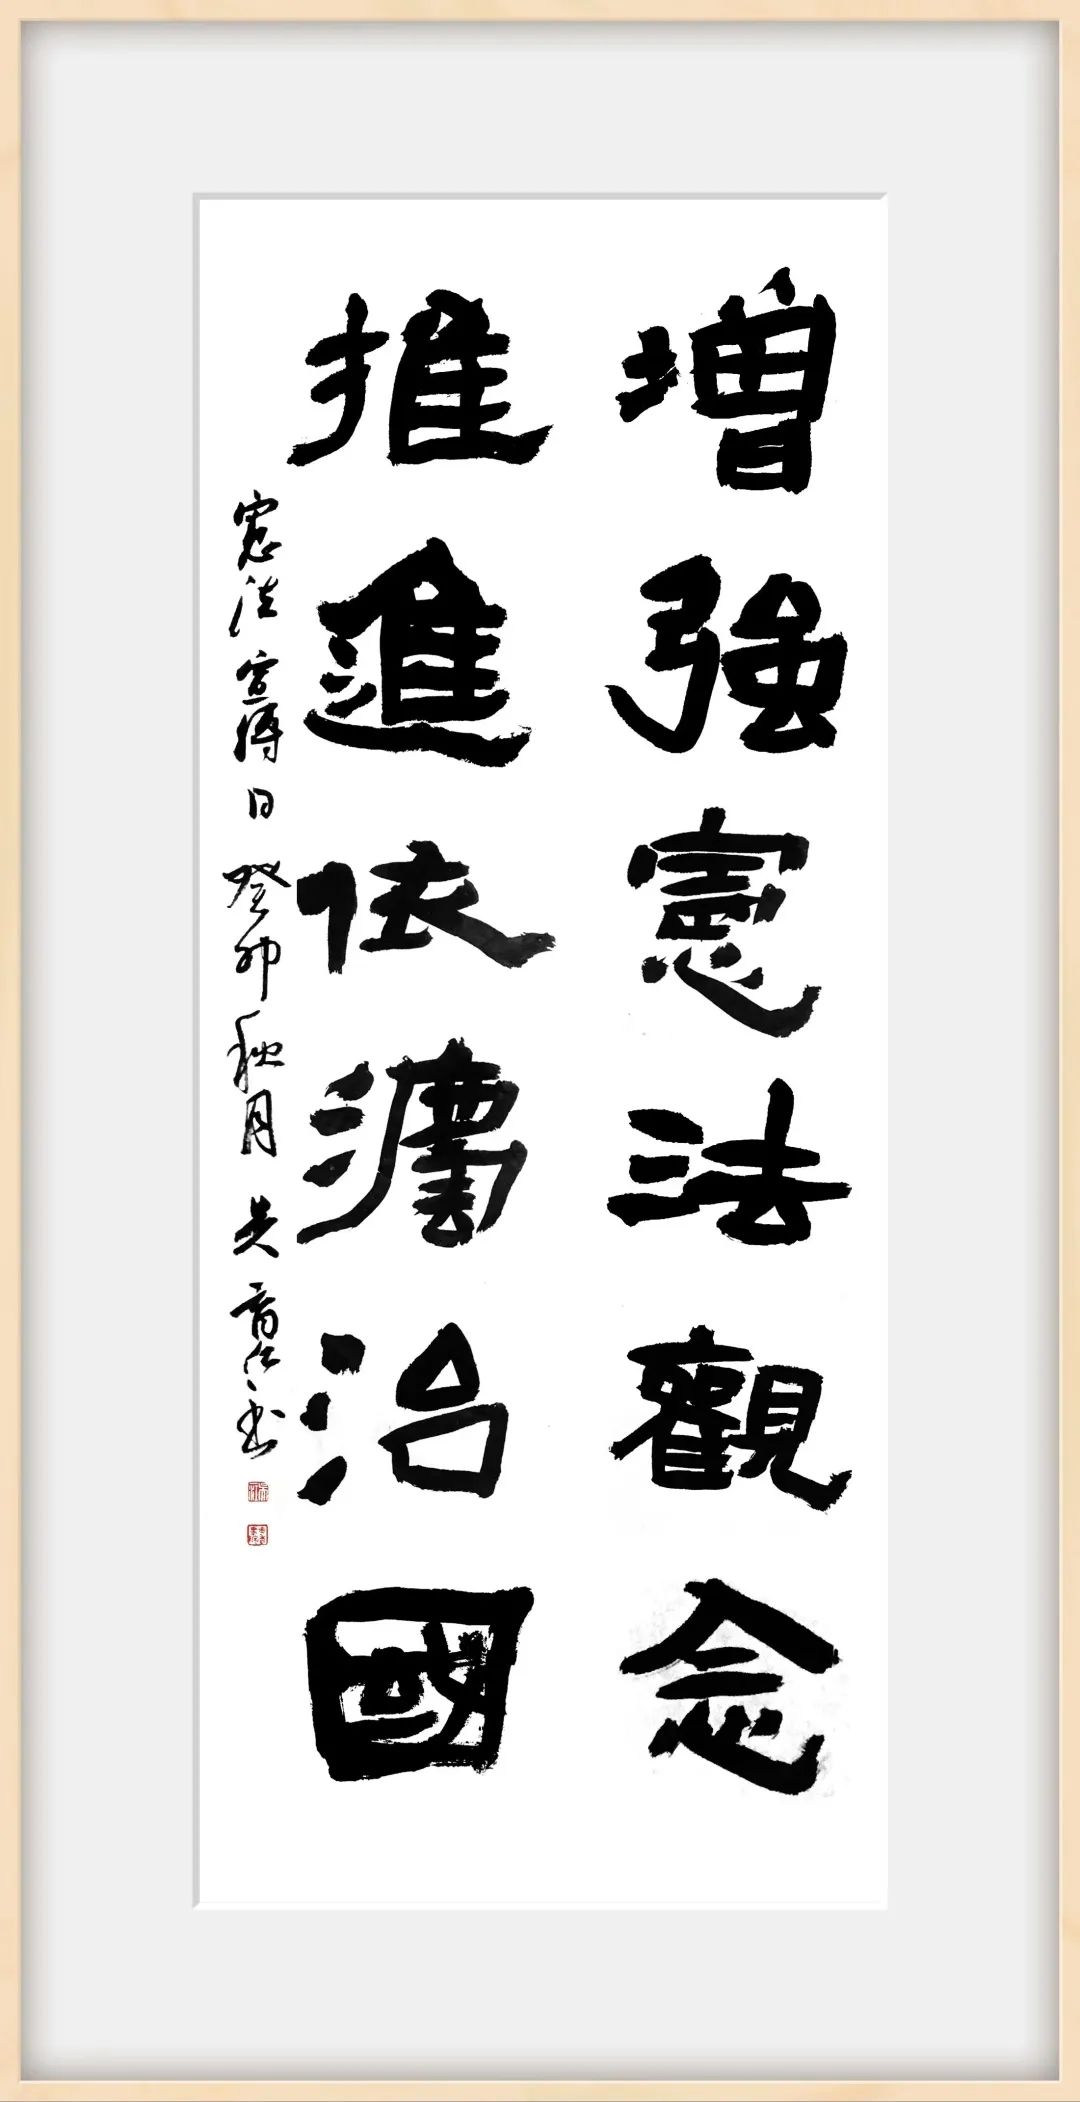 增強憲法觀念
推進依灋治國
憲法宣傳日 癸卯秋月 吴
书